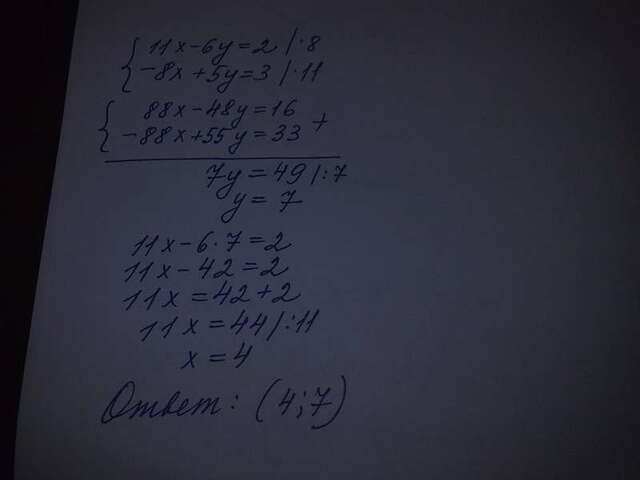 { 11x-6y=2 |·8
-8x+5y=3 |·11
{ 88x-48y=16
-88x+55y=33 +
7y=49 |:7
y=7
11x-6·7=2
11x-42=2
11x=42+2
11x=44 |:11
x=4
Ответ: (4;7)